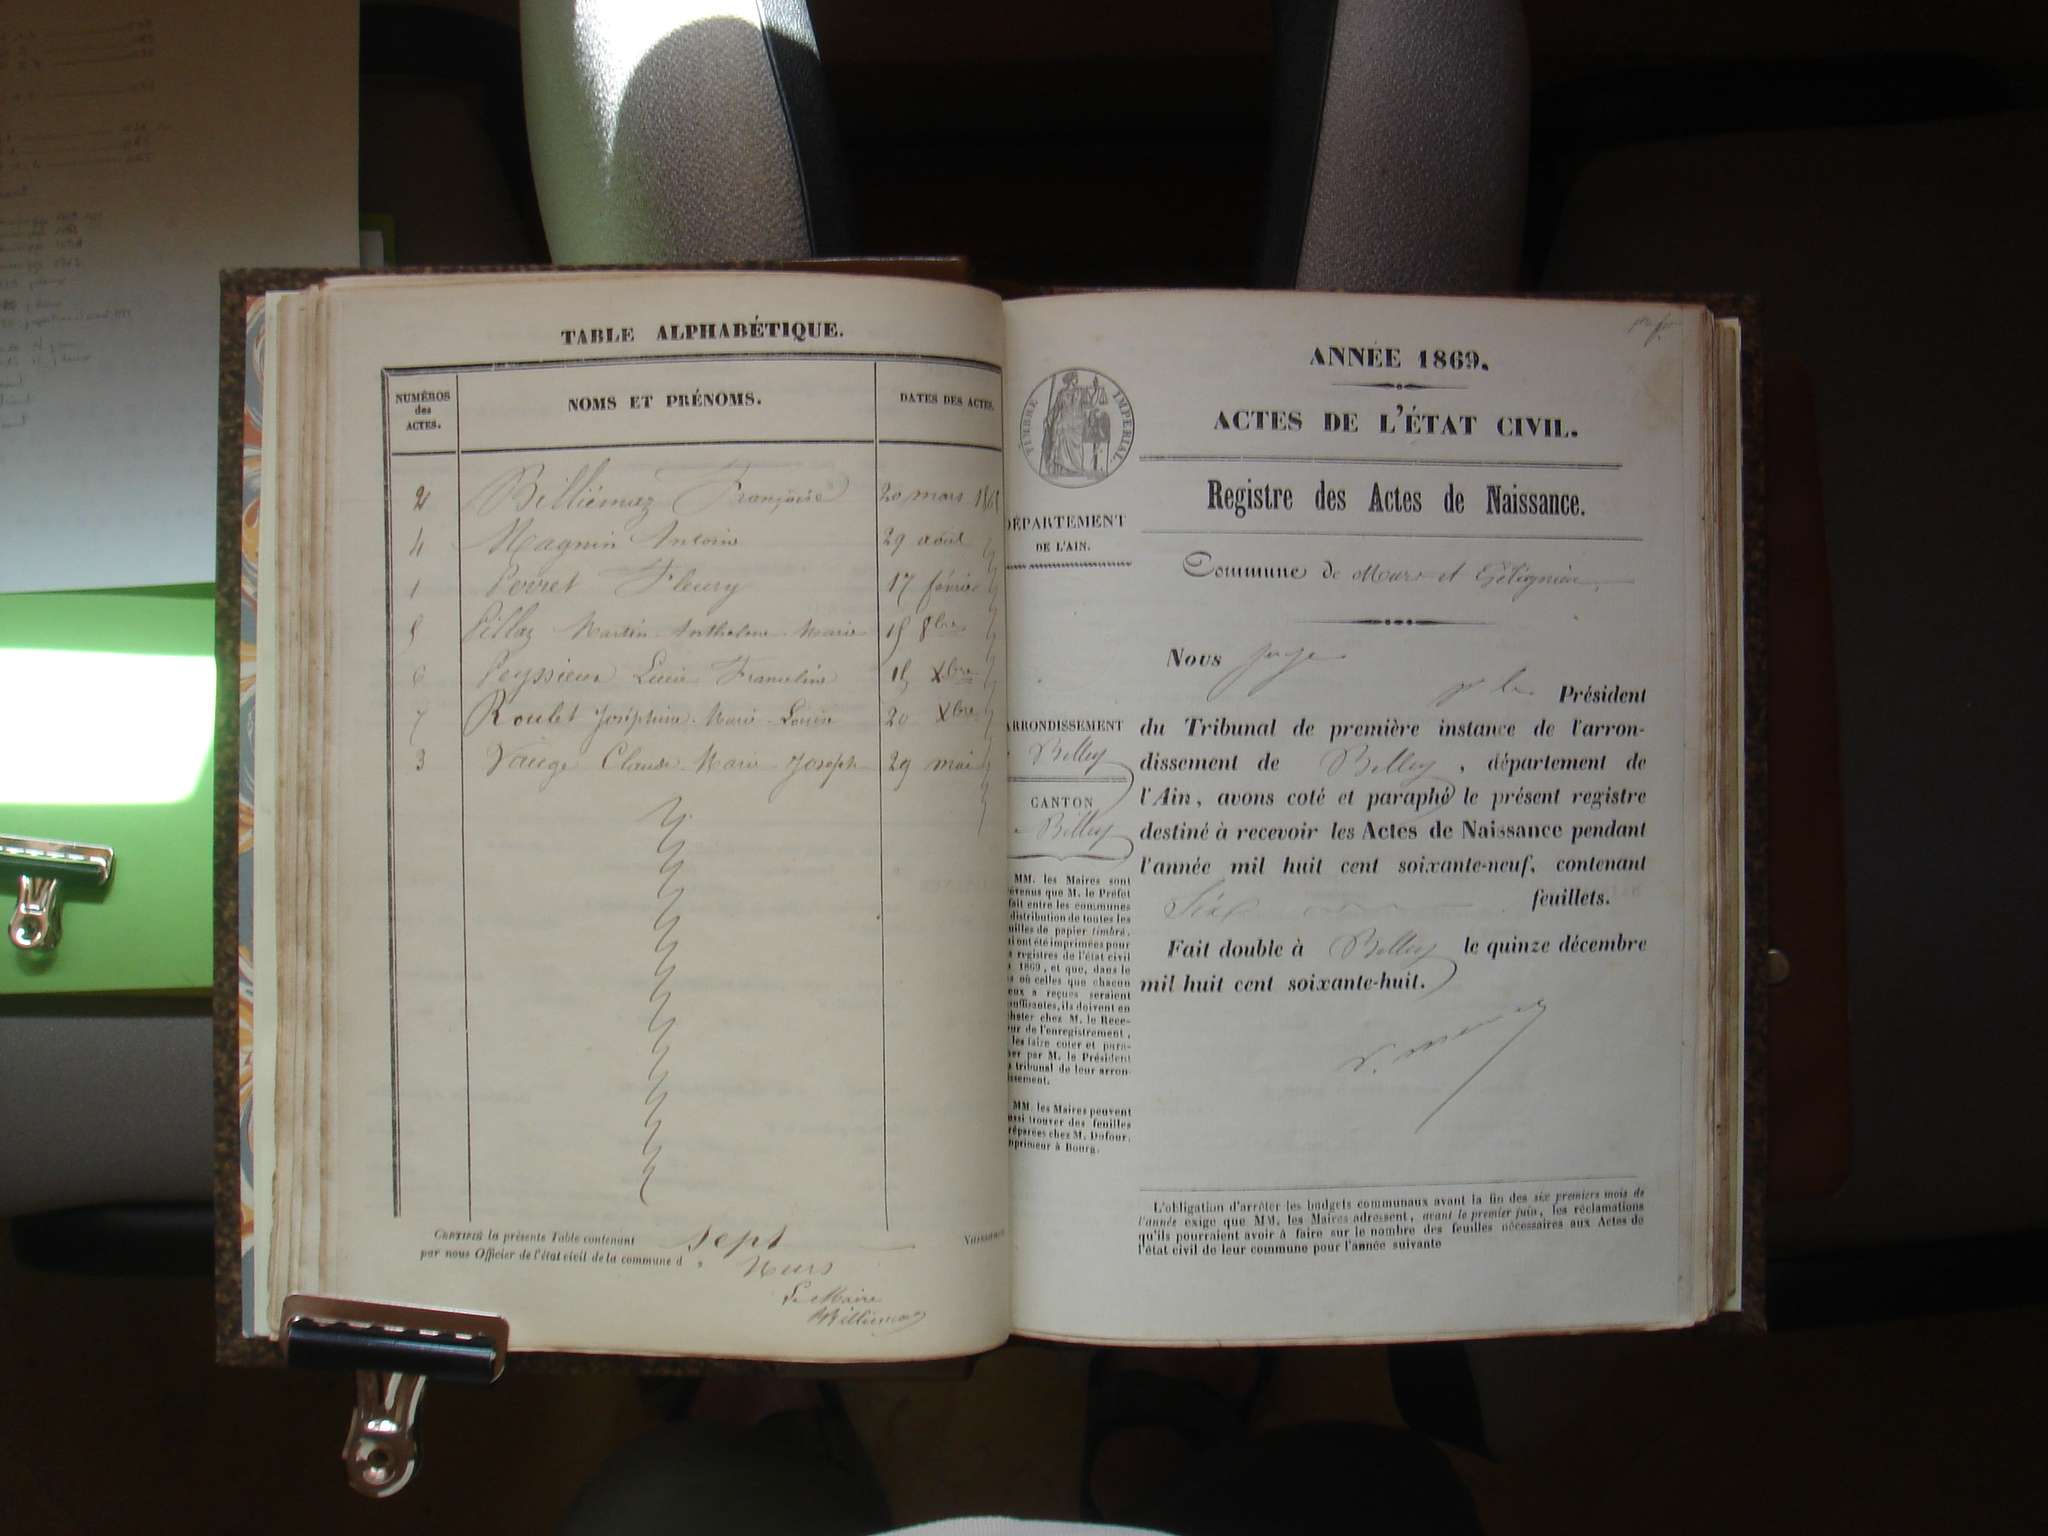 TABLE ALPHABÉTIQUE.
NUMÉROS
des
ACTES.
NOMS ET PRÉNOMS.
DATES DES ACTES.
2 Billiémaz Françoise 20 mars 1868
4 Magnin Antoine 29 août
1 Perret Fleury 17 février
5 Pillaz Martin Anthelme Marie 15 8bre
6 Peyssieux Lucie Franceline 15 Xbre
7 Roulet Joséphine Marie Louise 20 Xbre
3 Vauge Claude Marie Joseph 29 mai
CERTIFIÉ la présente Table contenant sept
par nous Officier de l'état civil de la commune d Murs
Le Maire
Billiemaz
ANNÉE 1869.
TIMBRE IMPÉRIAL.
ACTES DE L'ÉTAT CIVIL.
Registre des Actes de Naissance.
DÉPARTEMENT
DE L'AIN.
Commune de Murs et Gélignieux
ARRONDISSEMENT
Belley
CANTON
Belley
MM. les Maires sont
évenus que M. le Préfet
fait entre les communes
distribution de toutes les
uilles de papier timbré,
i ont été imprimées pour
s registres de l'état civil
1869, et que, dans le
s où celles que chacun
eux a reçues seraient
suffisantes, ils doivent en
heter chez M. le Rece-
ur de l'enregistrement,
les faire coter et para-
her par M. le Président
tribunal de leur arron-
issement.
MM. les Maires peuvent
ussi trouver des feuilles
réparées chez M. Dufour,
mprimeur à Bourg.
Nous juge
Président
du Tribunal de première instance de l'arron-
dissement de Belley, département de
l'Ain, avons coté et paraphé le présent registre
destiné à recevoir les Actes de Naissance pendant
l'année mil huit cent soixante-neuf, contenant
Six feuillets.
Fait double à Belley le quinze décembre
mil huit cent soixante-huit.
L'obligation d'arrêter les budgets communaux avant la fin des six premiers mois de
l'année exige que MM. les Maires adressent, avant le premier juin, les réclamations
qu'ils pourraient avoir à faire sur le nombre des feuilles nécessaires aux Actes de
l'état civil de leur commune pour l'année suivante